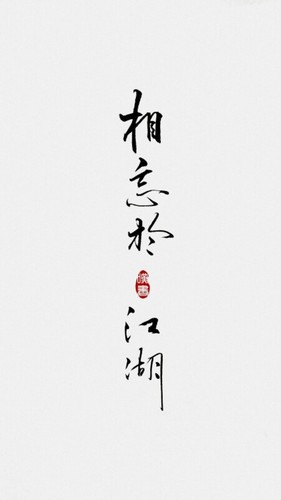 相忘於江湖